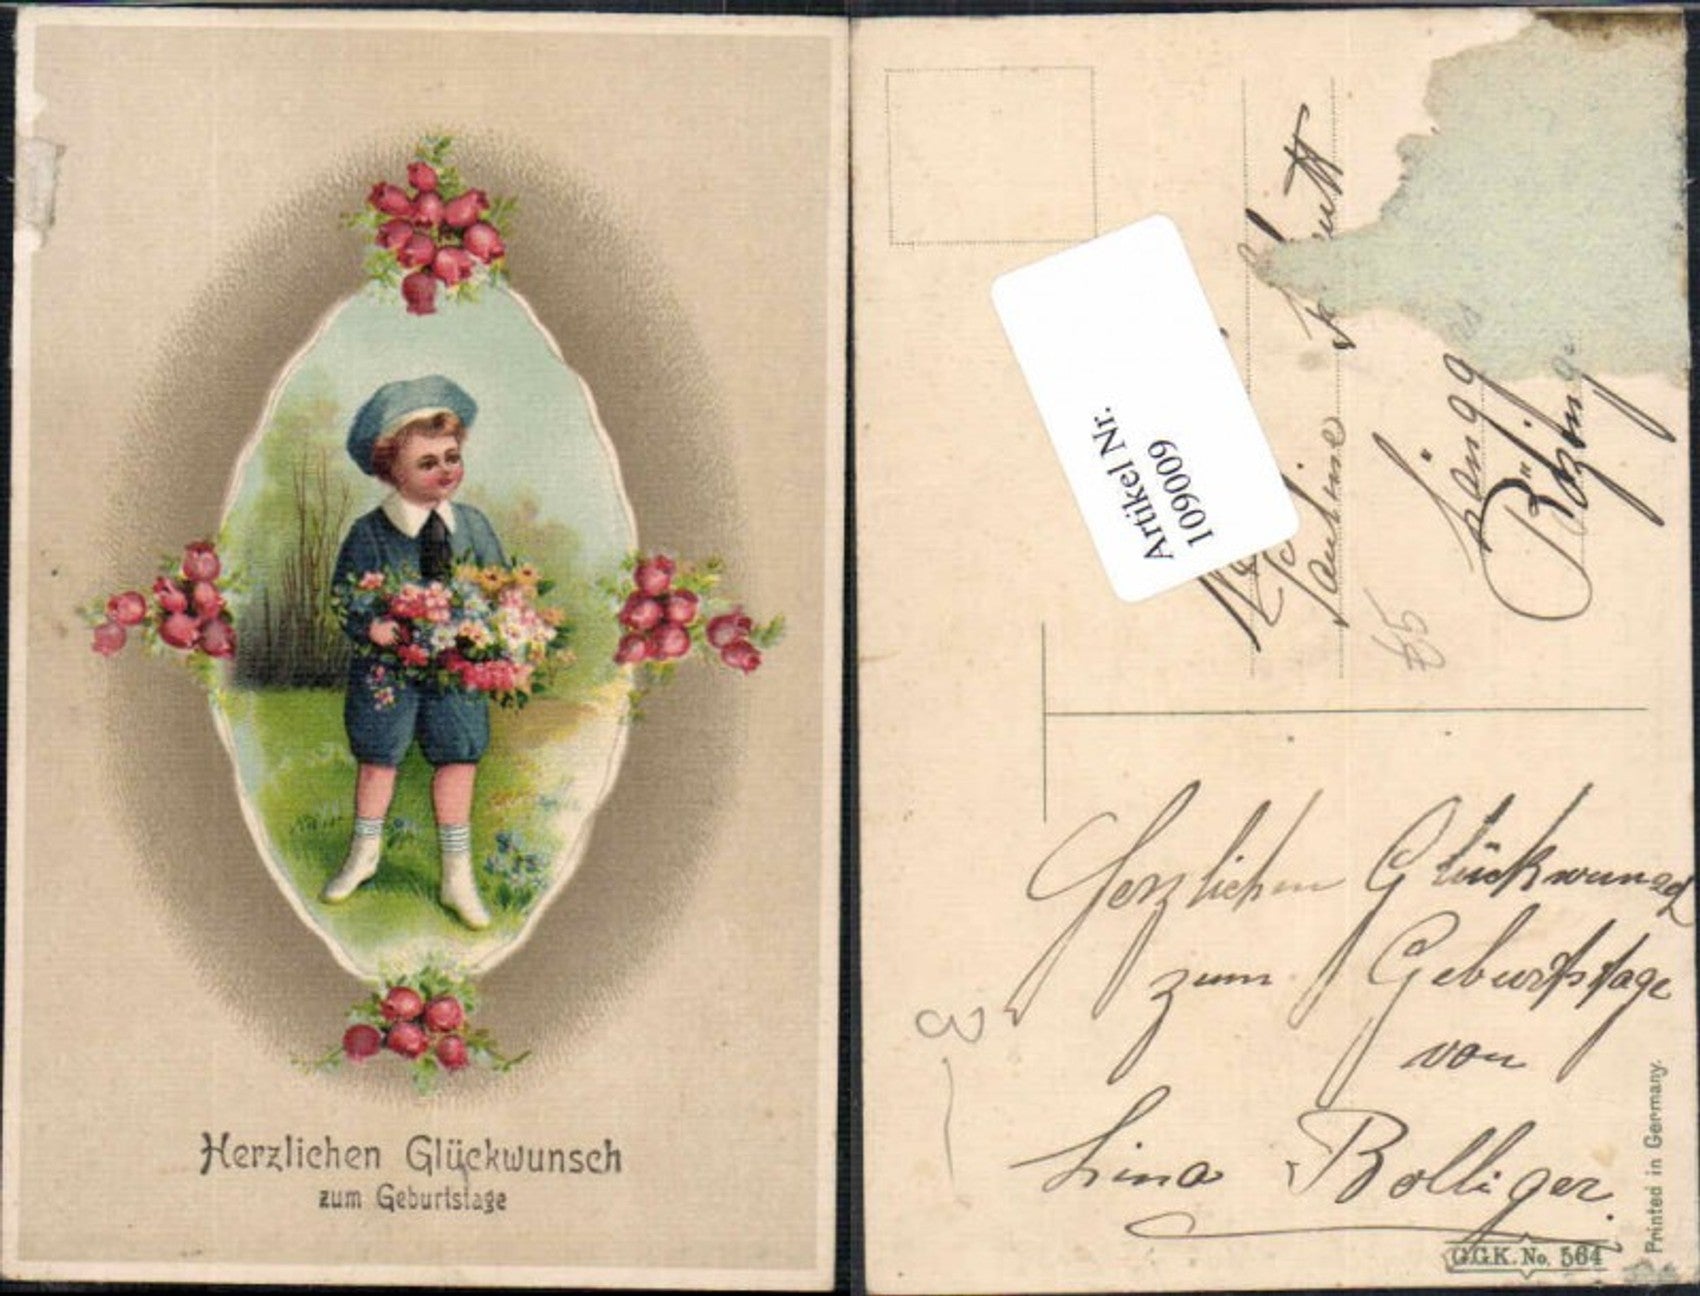 Herzlichen Glückwunsch
zum Geburtstage
Artikel Nr.
109009
Pauline
Längg
85
Herzlichen Glückwunsch
zum Geburtstage
von
Lina Bolliger.
G.G.K. No. 564
Printed in Germany.